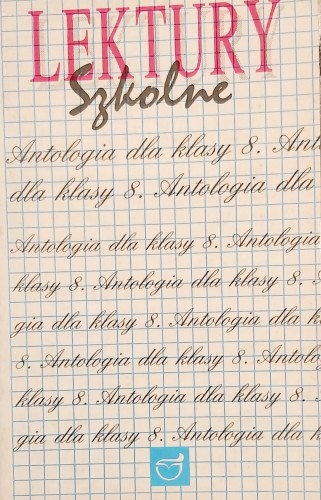 LEKTURY
Szkolne
Antologia dla klasy 8. Ant
dla klasy 8. Antologia dla
Antologia dla klasy 8. Antologia
klasy 8. Antologia dla klasy 8.
gia dla klasy 8. Antologia dla k
8. Antologia dla klasy 8. Antolog
klasy 8. Antologia dla klasy 8.
gia dla klasy 8. Antologia dla k